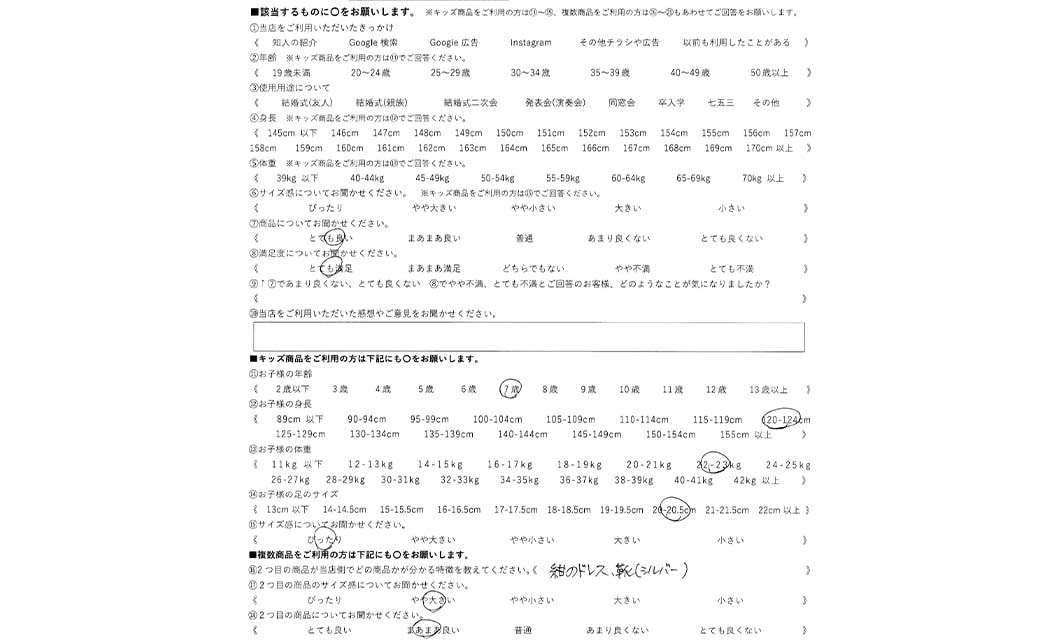 ■該当するものに〇をお願いします。 ※キッズ商品をご利用の方は⑪～⑮、複数商品をご利用の方は⑯～㉑もあわせてご回答をお願いします。
①当店をご利用いただいたきっかけ
《 知人の紹介 Google 検索 Google 広告 Instagram その他チラシや広告 以前も利用したことがある 》
②年齢 ※キッズ商品をご利用の方は⑪でご回答ください。
《 19歳未満 20～24歳 25～29歳 30～34歳 35～39歳 40～49歳 50歳以上 》
③使用用途について
《 結婚式(友人) 結婚式(親族) 結婚式二次会 発表会(演奏会) 同窓会 卒入学 七五三 その他 》
④身長 ※キッズ商品をご利用の方は⑫でご回答ください。
《 145cm 以下 146cm 147cm 148cm 149cm 150cm 151cm 152cm 153cm 154cm 155cm 156cm 157cm
158cm 159cm 160cm 161cm 162cm 163cm 164cm 165cm 166cm 167cm 168cm 169cm 170cm 以上 》
⑤体重 ※キッズ商品をご利用の方は⑬でご回答ください。
《 39kg 以下 40-44kg 45-49kg 50-54kg 55-59kg 60-64kg 65-69kg 70kg 以上 》
⑥サイズ感についてお聞かせください。 ※キッズ商品をご利用の方は⑮でご回答ください。
《 ぴったり やや大きい やや小さい 大きい 小さい 》
⑦商品についてお聞かせください。
《 とても良い まあまあ良い 普通 あまり良くない とても良くない 》
⑧満足度についてお聞かせください。
《 とても満足 まあまあ満足 どちらでもない やや不満 とても不満 》
⑨↑⑦であまり良くない、とても良くない ⑧でやや不満、とても不満とご回答のお客様、どのようなことが気になりましたか？
《 》
⑩当店をご利用いただいた感想やご意見をお聞かせください。
■キッズ商品をご利用の方は下記にも〇をお願いします。
⑪お子様の年齢
《 2歳以下 3歳 4歳 5歳 6歳 7歳 8歳 9歳 10歳 11歳 12歳 13歳以上 》
⑫お子様の身長
《 89cm 以下 90-94cm 95-99cm 100-104cm 105-109cm 110-114cm 115-119cm 120-124cm
125-129cm 130-134cm 135-139cm 140-144cm 145-149cm 150-154cm 155cm 以上 》
⑬お子様の体重
《 11kg 以下 12-13kg 14-15kg 16-17kg 18-19kg 20-21kg 22-23kg 24-25kg
26-27kg 28-29kg 30-31kg 32-33kg 34-35kg 36-37kg 38-39kg 40-41kg 42kg 以上 》
⑭お子様の足のサイズ
《 13cm 以下 14-14.5cm 15-15.5cm 16-16.5cm 17-17.5cm 18-18.5cm 19-19.5cm 20-20.5cm 21-21.5cm 22cm 以上 》
⑮サイズ感についてお聞かせください。
《 ぴったり やや大きい やや小さい 大きい 小さい 》
■複数商品をご利用の方は下記にも〇をお願いします。
⑯2つ目の商品が当店側でどの商品かが分かる特徴を教えてください。《 紺のドレス、靴(シルバー) 》
⑰2つ目の商品のサイズ感についてお聞かせください。
《 ぴったり やや大きい やや小さい 大きい 小さい 》
⑱2つ目の商品についてお聞かせください。
《 とても良い まあまあ良い 普通 あまり良くない とても良くない 》